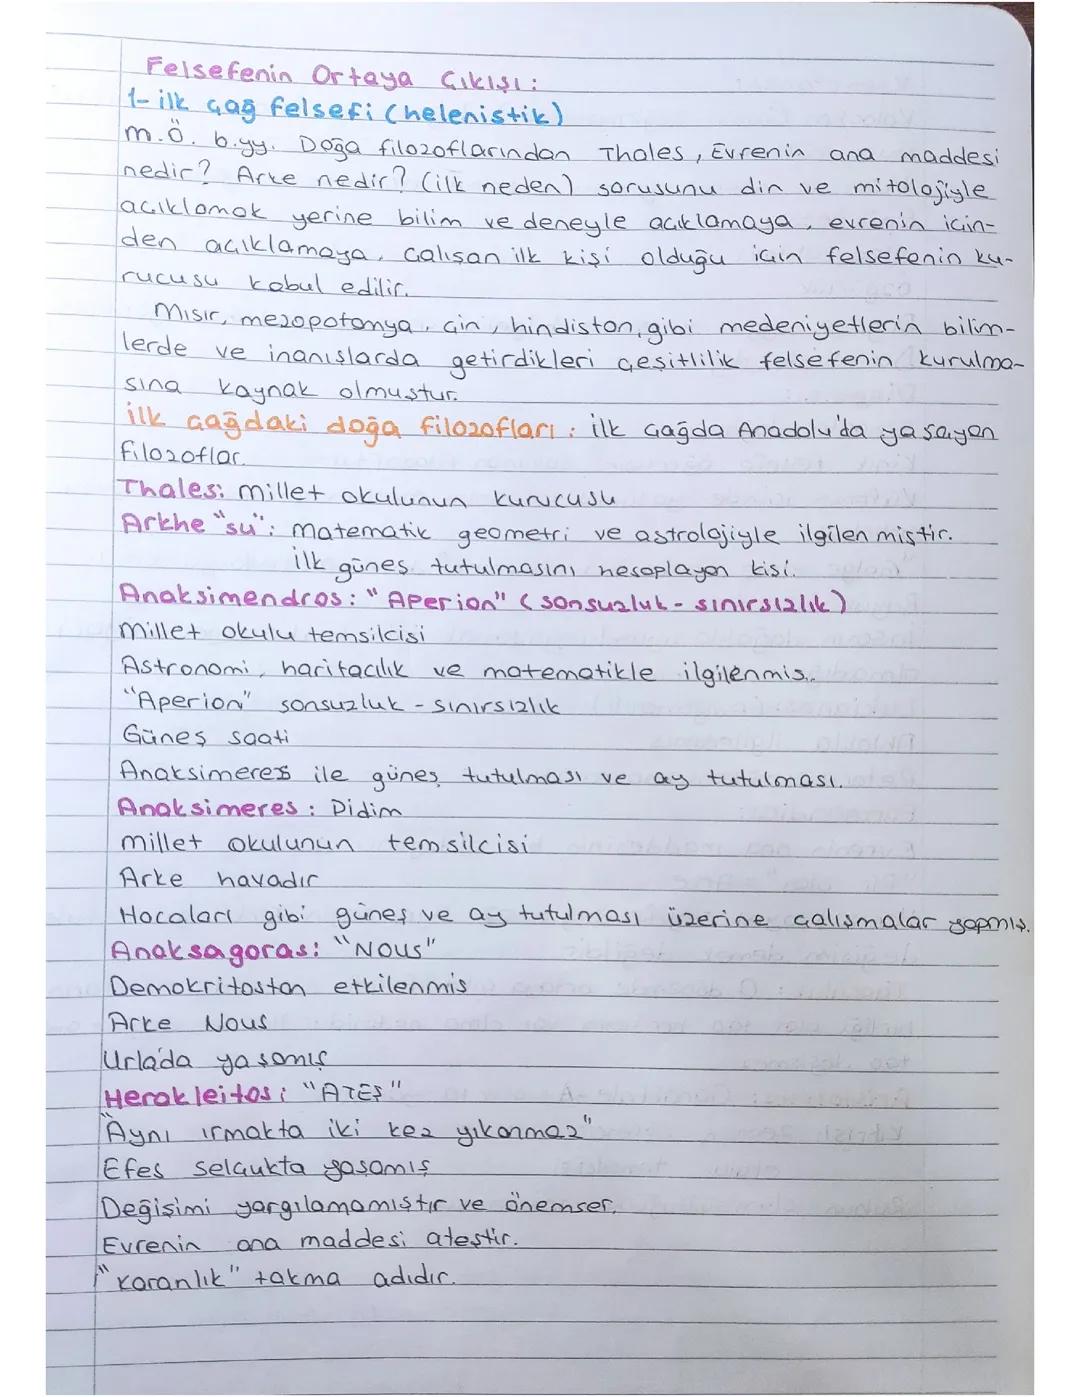 Felsefenin Ortaya Çıkışı:
1- ilk çağ felsefi (helenistik)
M.Ö. b.yy. Doğa filozoflarından Thales, Evrenin ana maddesi
nedir? Arke nedir? (ilk neden) sorusunu din ve mitolojiyle
açıklamak yerine bilim ve deneyle açıklamaya, evrenin için-
den açıklamaya, çalışan ilk kişi olduğu için felsefenin ku-
rucusu kabul edilir.
Mısır, mezopotamya, çin, hindistan, gibi medeniyetlerin bilim-
lerde ve inanışlarda getirdikleri çeşitlilik felsefenin kurulma-
sına kaynak olmuştur.
ilk çağdaki doğa filozofları: ilk çağda Anadolu'da yaşayan
filozoflar.
Thales: millet okulunun kurucusu
Arkhe "su": Matematik geometri ve astrolojiyle ilgilenmiştir.
ilk güneş tutulmasını hesaplayan kişi.
Anaksimendros: "Aperion" (sonsuzluk - sınırsızlık)
millet okulu temsilcisi
Astronomi, haritacılık ve matematikle ilgilenmiş..
"Aperion" sonsuzluk - sınırsızlık
Güneş saati
Anaksimeres ile güneş tutulması ve ay tutulması.
Anaksimeres: Didim
millet okulunun temsilcisi
Arke havadır
Hocaları gibi güneş ve ay tutulması üzerine çalışmalar yapmış.
Anaksagoras: "Nous"
Demokritostan etkilenmiş
Arke Nous
Urla'da yaşamış
Herakleitos: "ATEŞ"
"Aynı ırmakta iki kez yıkanmaz"
Efes selçukta yaşamış
Değişimi yargılamamıştır ve önemser.
Evrenin ana maddesi ateştir.
"karanlık" takma adıdır.